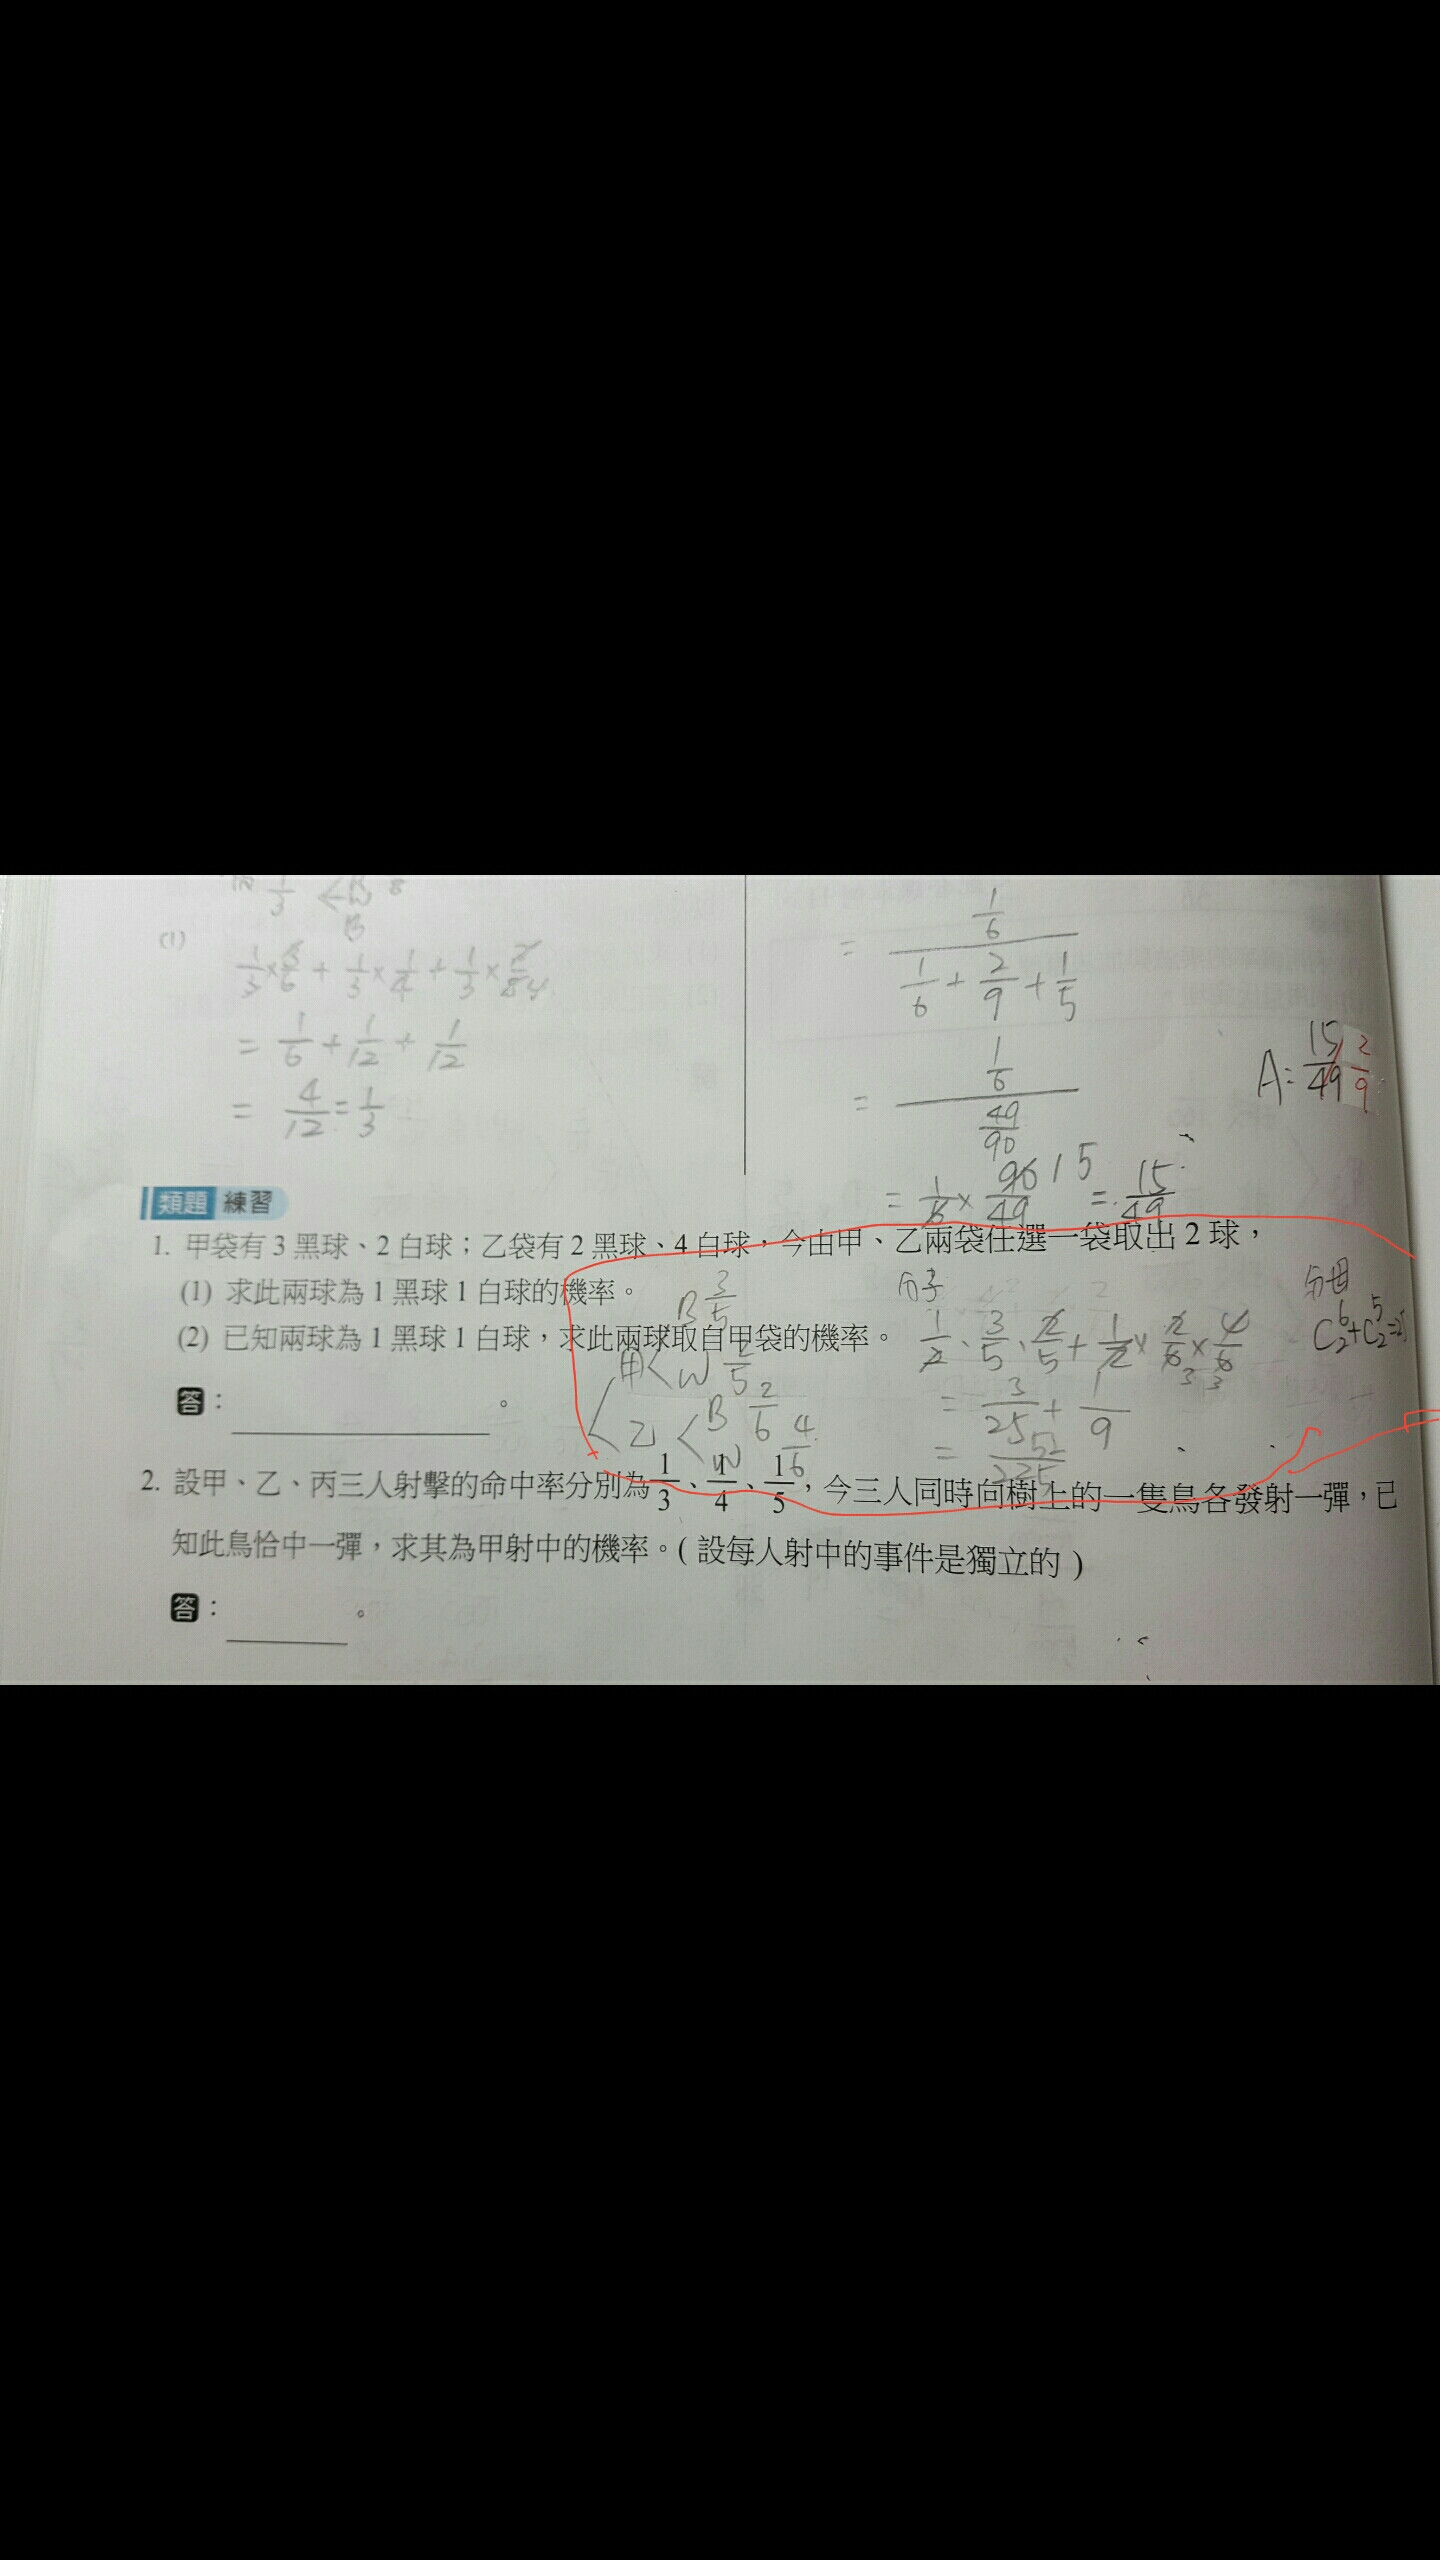 (1)
1/3 × 3/6 + 1/3 × 1/4 + 1/3 × 2/8 4
= 1/6 + 1/12 + 1/12
= 4/12 = 1/3
= 1/6 / (1/6 + 2/9 + 1/5)
= 1/6 / 49/90
= 1/6 × 90/49 15 = 15/49
A = 15/49 2/9
類題 練習
1. 甲袋有 3 黑球、2 白球；乙袋有 2 黑球、4 白球，今由甲、乙兩袋任選一袋取出 2 球，
(1) 求此兩球為 1 黑球 1 白球的機率。
(2) 已知兩球為 1 黑球 1 白球，求此兩球取自甲袋的機率。
答：。
甲 B 3/5
W 2/5
乙 B 2/6
W 4/6
分子
1/2 · 3/5 · 2/5 + 1/2 × 2/6 3 × 4/6 3
= 3/25 + 1/9
= 52/225
分母
C⁶₂+C⁵₂=
2. 設甲、乙、丙三人射擊的命中率分別為 1/3、1/4、1/5，今三人同時向樹上的一隻鳥各發射一彈，已
知此鳥恰中一彈，求其為甲射中的機率。( 設每人射中的事件是獨立的 )
答：。